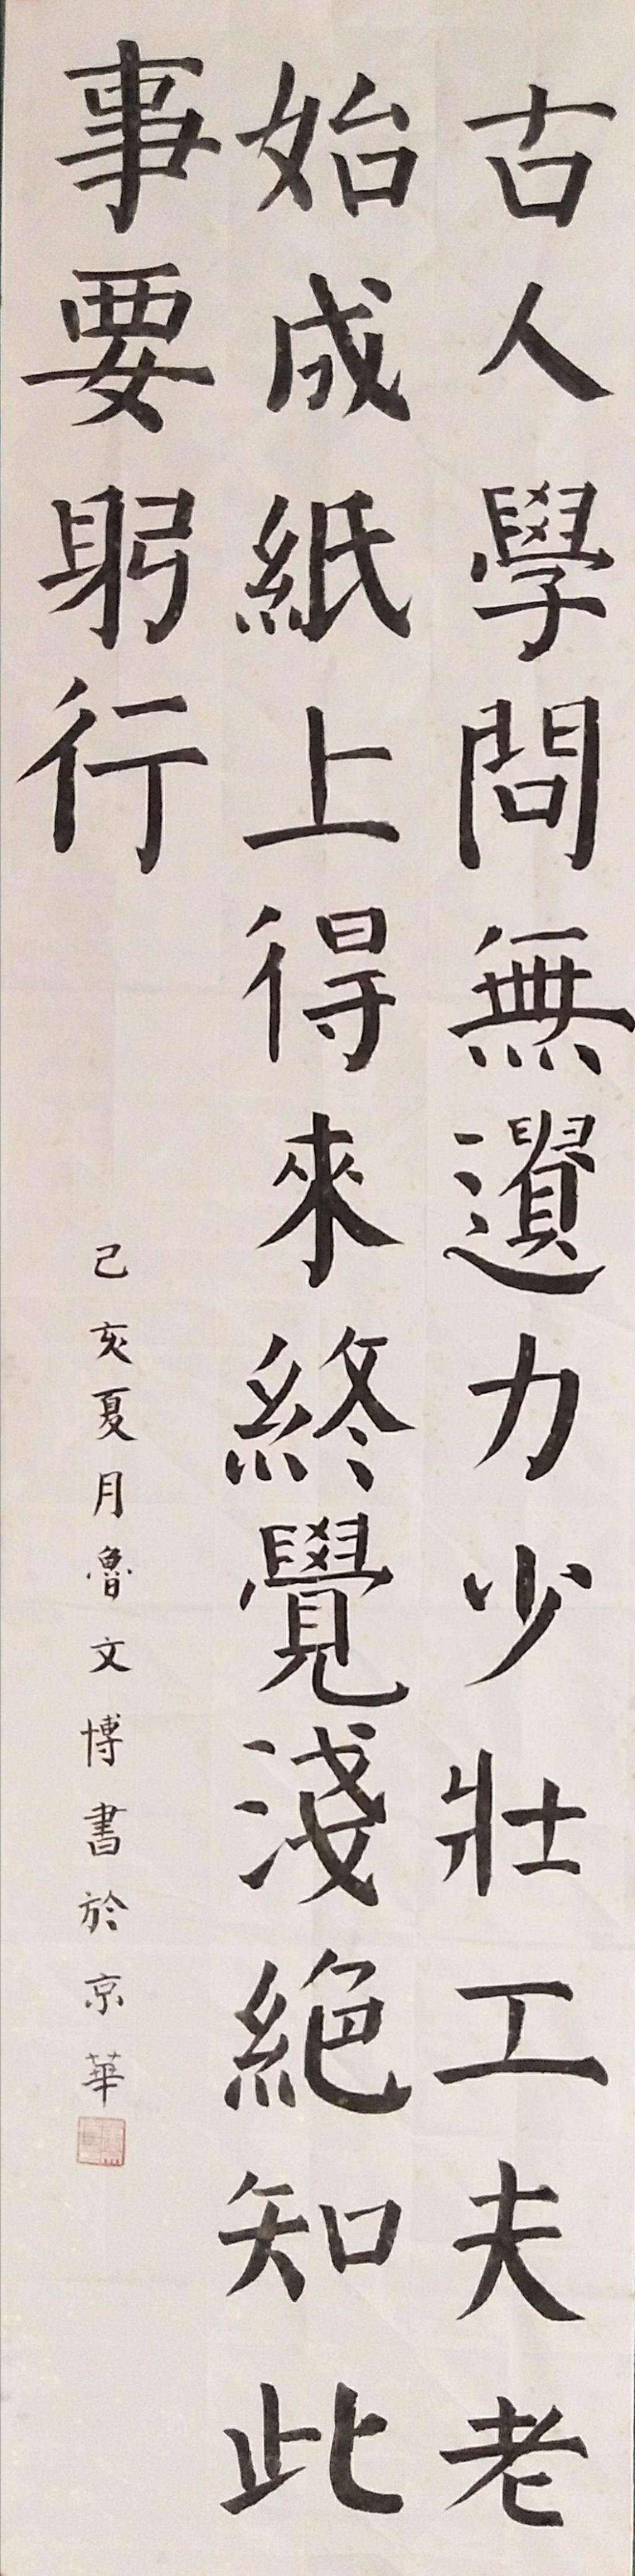 古人學問無遺力少壯工夫老
始成紙上得來終覺淺絕知此
事要躬行
己亥夏月魯文博書於京華